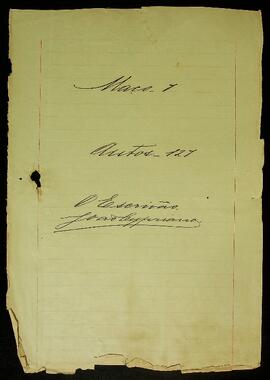 Maço_ 7
Autos_ 127
O Escrivão
João Cypriano